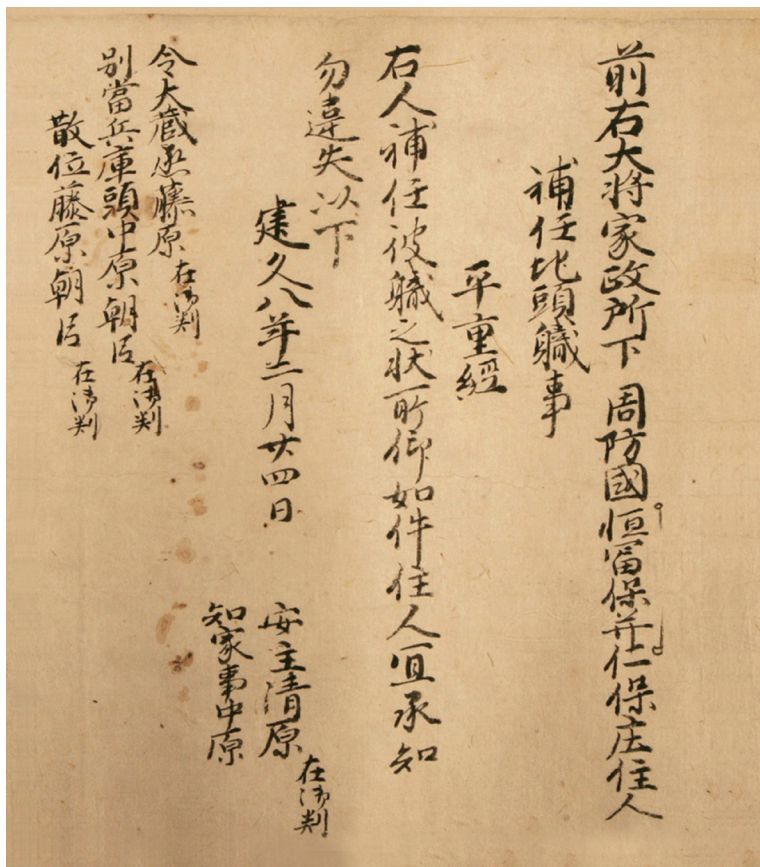 前右大将家政所下 周防國恒冨保并仁保庄住人
補任地頭職事
平重經
右人補任彼職之状所仰如件住人宜承知
勿違失以下
建久八年二月廿四日
案主清原 在御判
知家事中原
令大蔵丞藤原 在御判
別當兵庫頭中原朝臣 在御判
散位藤原朝臣 在御判